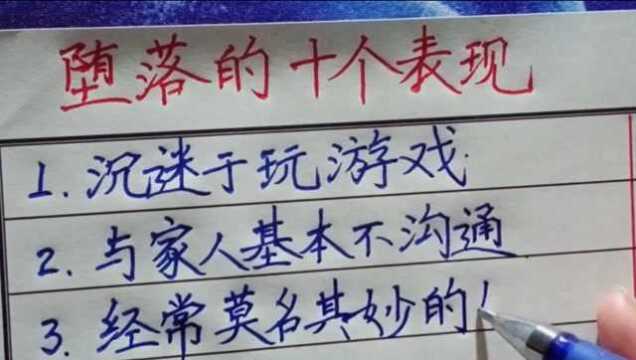 堕落的十个表现
1. 沉谜于玩游戏
2. 与家人基本不沟通
3. 经常莫名其妙的